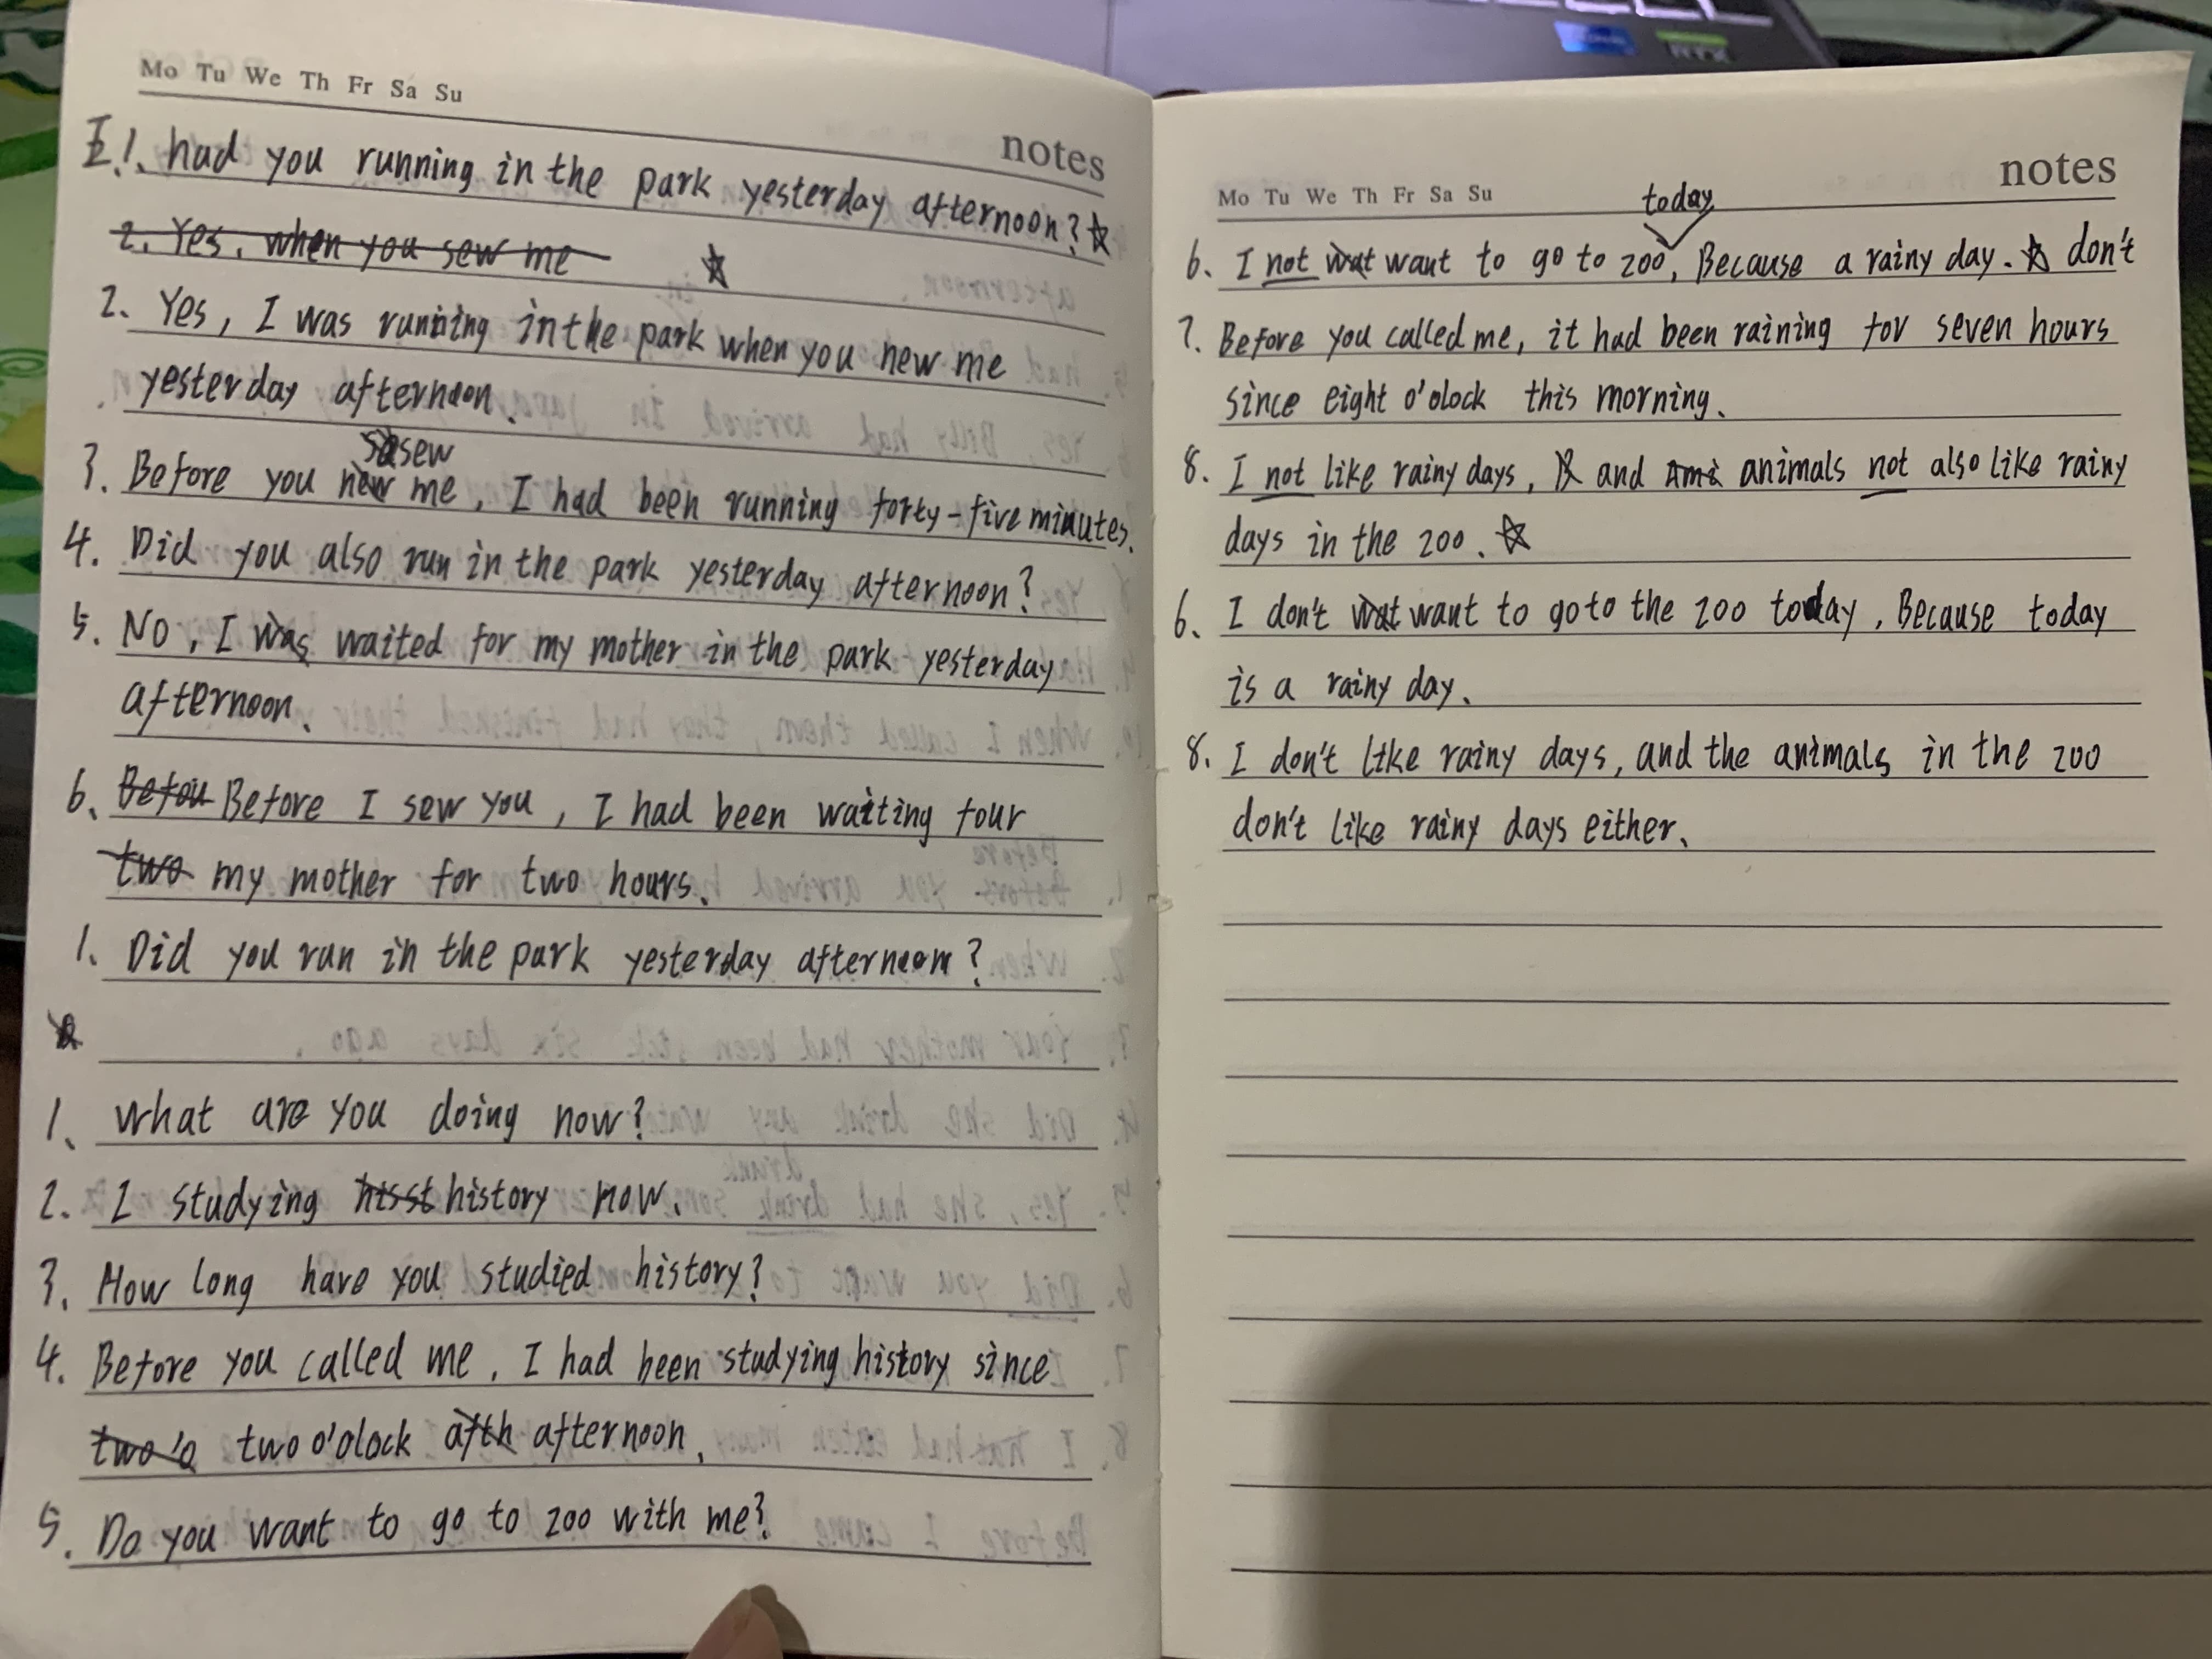 Mo Tu We Th Fr Sa Su
notes
I 1. had you running in the park yesterday afternoon? ☆
2. Yes, when you sew me ☆
2. Yes, I was running in the park when you new me
yesterday afternoon.
sew
3. Before you new me, I had been running forty-five minutes.
4. Did you also run in the park yesterday afternoon?
5. No, I was waited for my mother in the park yesterday
afternoon.
6. Befou Before I sew you, I had been waiting four
two my mother for two hours.
1. Did you run in the park yesterday afternoon?
1. What are you doing now?
2. I studying hisst history now.
3. How long have you studied history?
4. Before you called me, I had been studying history since
two'o two o'olock afth afternoon.
5. Do you want to go to zoo with me?
Mo Tu We Th Fr Sa Su
notes
today
6. I not wat want to go to zoo, Because a rainy day. ☆ don't
7. Before you called me, it had been raining for seven hours
since eight o'olock this morning.
8. I not like rainy days, and Ami animals not also like rainy
days in the zoo. ☆
6. I don't wat want to go to the zoo today, Because today
is a rainy day.
8. I don't like rainy days, and the animals in the zoo
don't like rainy days either.
RTX